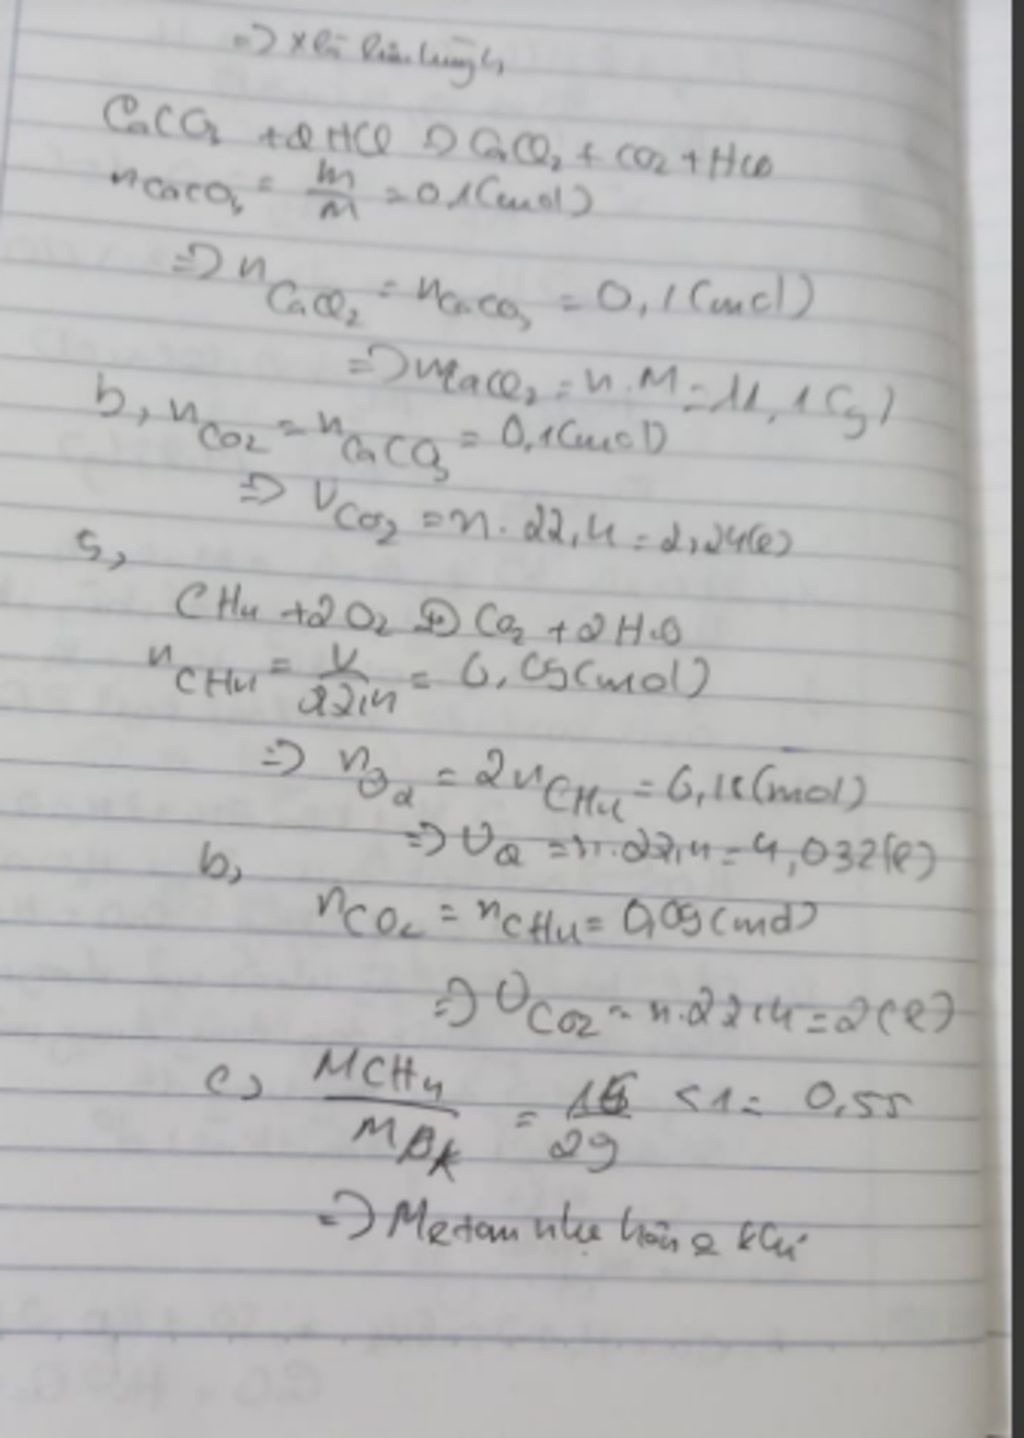 =>
CaCO3 + 2HCl => CaCl2 + CO2 + H2O
nCaCO3 = m/M = 0,1(mol)
=> nCaCl2 = nCaCO3 = 0,1(mol)
=> mCaCl2 = n.M = 11,1(g)
b, nCO2 = nCaCO3 = 0,1(mol)
=> VCO2 = n.22,4 = 2,24(l)
5,
CH4 + 2O2 => CO2 + 2H2O
nCH4 = V/22,4 = 0,09(mol)
=> nO2 = 2nCH4 = 0,18(mol)
=> VO2 = n.22,4 = 4,032(l)
b,
nCO2 = nCH4 = 0,09(mol)
=> VCO2 = n.22,4 = 2(l)
c, MCH4/MKK = 16/29 <1 = 0,55
=> Metan nhẹ hơn kk